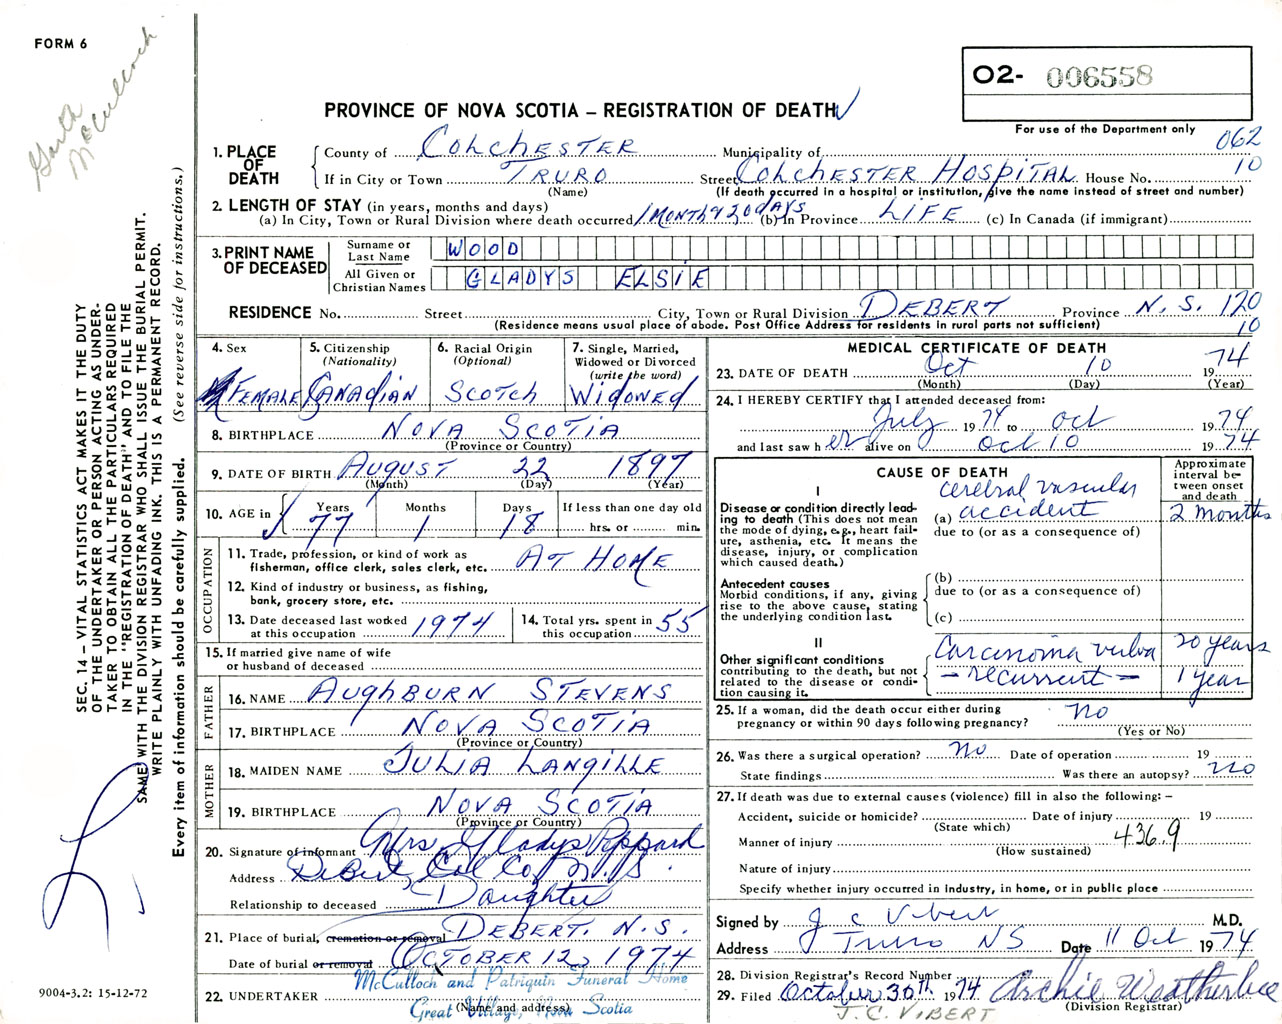 FORM 6
Garth McCulloch
O2- 006558
For use of the Department only
PROVINCE OF NOVA SCOTIA – REGISTRATION OF DEATH
062
10
1. PLACE OF DEATH
County of Colchester Municipality of
If in City or Town Truro Street Colchester Hospital House No.
(Name) (If death occurred in a hospital or institution, give the name instead of street and number)
2. LENGTH OF STAY (in years, months and days)
(a) In City, Town or Rural Division where death occurred 1 Month & 20 days (b) In Province LIFE (c) In Canada (if immigrant)
3. PRINT NAME OF DECEASED
Surname or Last Name WOOD
All Given or Christian Names GLADYS ELSIE
RESIDENCE No. Street City, Town or Rural Division DEBERT Province N.S. 120
(Residence means usual place of abode. Post Office Address for residents in rural parts not sufficient) 10
4. Sex Female
5. Citizenship (Nationality) Canadian
6. Racial Origin (Optional) Scotch
7. Single, Married, Widowed or Divorced (write the word) Widowed
8. BIRTHPLACE Nova Scotia
(Province or Country)
9. DATE OF BIRTH August 22 1897
(Month) (Day) (Year)
10. AGE in Years 77 Months 1 Days 18 If less than one day old hrs. or min.
OCCUPATION
11. Trade, profession, or kind of work as fisherman, office clerk, sales clerk, etc. At Home
12. Kind of industry or business, as fishing, bank, grocery store, etc.
13. Date deceased last worked at this occupation 1974
14. Total yrs. spent in this occupation 55
15. If married give name of wife or husband of deceased
FATHER
16. NAME Aughburn Stevens
17. BIRTHPLACE Nova Scotia
(Province or Country)
MOTHER
18. MAIDEN NAME Julia Langille
19. BIRTHPLACE Nova Scotia
(Province or Country)
20. Signature of informant Mrs. Gladys Peppard
Address Debert, Col Co, N.S.
Relationship to deceased Daughter
21. Place of burial, cremation or removal Debert. N.S.
Date of burial or removal October 12, 1974
22. UNDERTAKER McCulloch and Patriquin Funeral Home
(Name and address)
Great Village, Nova Scotia
MEDICAL CERTIFICATE OF DEATH
23. DATE OF DEATH Oct 10 1974
(Month) (Day) (Year)
24. I HEREBY CERTIFY that I attended deceased from:
July 1974 to Oct 1974
and last saw her alive on Oct 10 1974
CAUSE OF DEATH
Approximate interval between onset and death
I
Disease or condition directly leading to death (This does not mean the mode of dying, e.g., heart failure, asthenia, etc. It means the disease, injury, or complication which caused death.)
(a) cerebral vascular accident 2 months
due to (or as a consequence of)
Antecedent causes
Morbid conditions, if any, giving rise to the above cause, stating the underlying condition last.
(b)
due to (or as a consequence of)
(c)
II
Other significant conditions contributing to the death, but not related to the disease or condition causing it.
Carcinoma vulva 20 years
– recurrent – 1 year
25. If a woman, did the death occur either during pregnancy or within 90 days following pregnancy? No
(Yes or No)
26. Was there a surgical operation? No Date of operation 19
State findings Was there an autopsy? No
27. If death was due to external causes (violence) fill in also the following: –
Accident, suicide or homicide? Date of injury 19
(State which)
Manner of injury 436.9
(How sustained)
Nature of injury
Specify whether injury occurred in industry, in home, or in public place
Signed by J C Vibert M.D.
Address Truro NS Date 11 Oct 1974
28. Division Registrar's Record Number
29. Filed October 30th 1974 Archie Weatherbee
(Division Registrar)
J.C. VIBERT
SEC. 14 – VITAL STATISTICS ACT MAKES IT THE DUTY
OF THE UNDERTAKER OR PERSON ACTING AS UNDER-
TAKER TO OBTAIN ALL THE PARTICULARS REQUIRED
IN THE "REGISTRATION OF DEATH" AND TO FILE THE
SAME WITH THE DIVISION REGISTRAR WHO SHALL ISSUE THE BURIAL PERMIT.
WRITE PLAINLY WITH UNFADING INK. THIS IS A PERMANENT RECORD.
Every item of information should be carefully supplied. (See reverse side for instructions.)
9004-3.2: 15-12-72